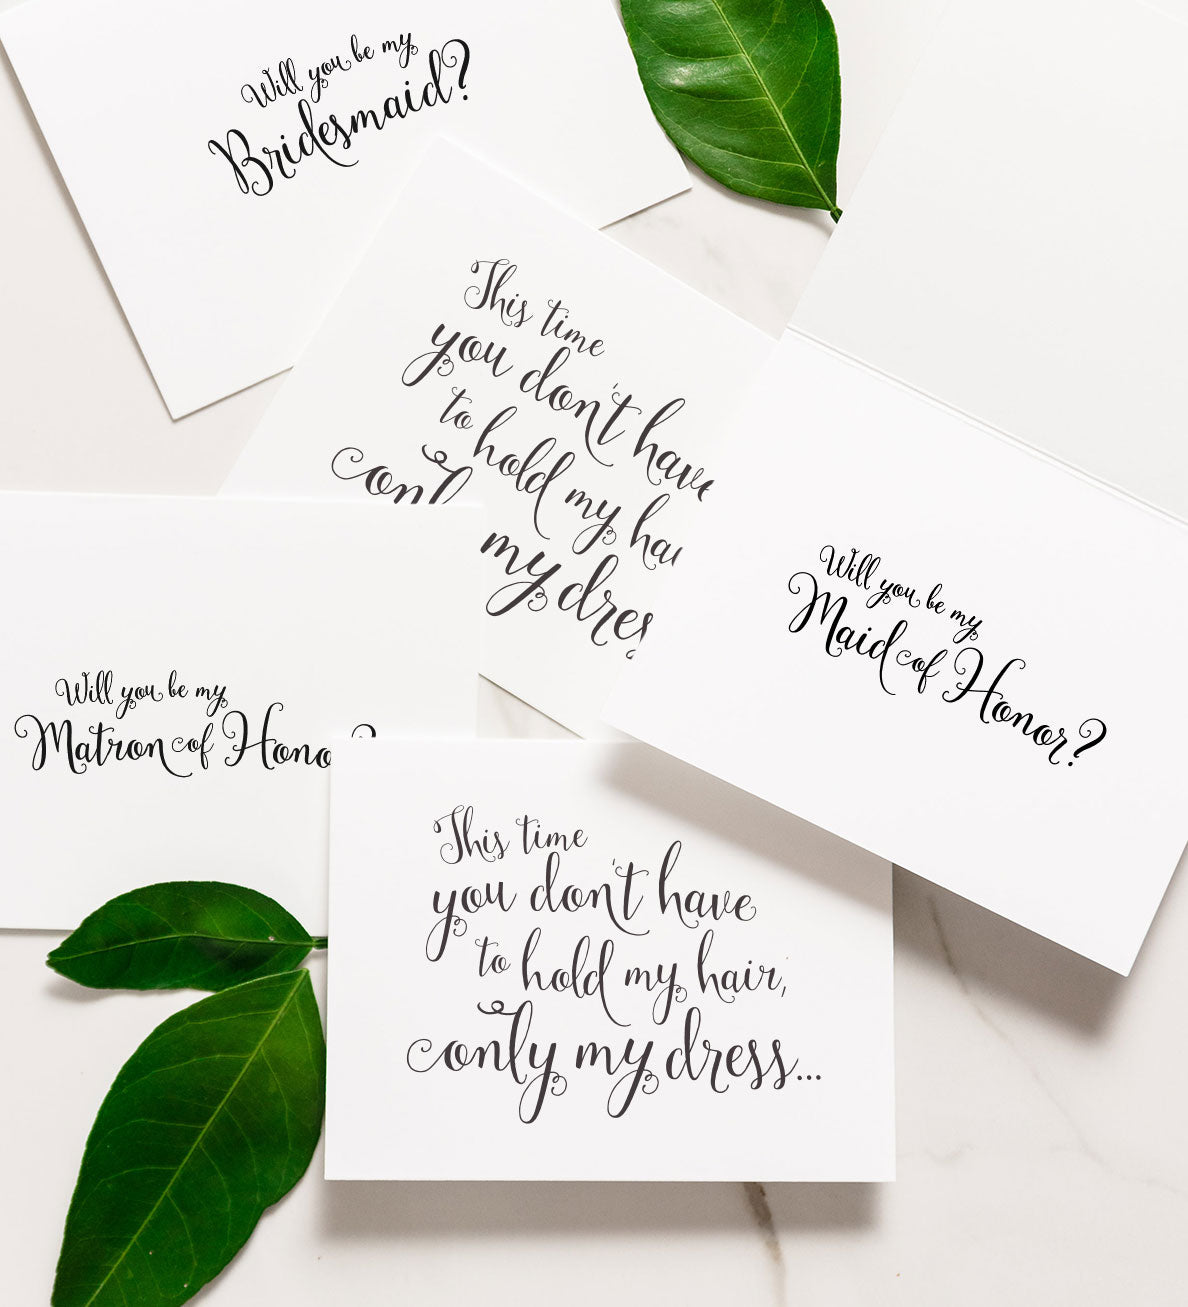 Will you be my
Bridesmaid?
This time
you don't have
to hold my
only
my
Will you be my
Maid of Honor?
Will you be my
Matron of
This time
you don't have
to hold my hair,
only my dress...